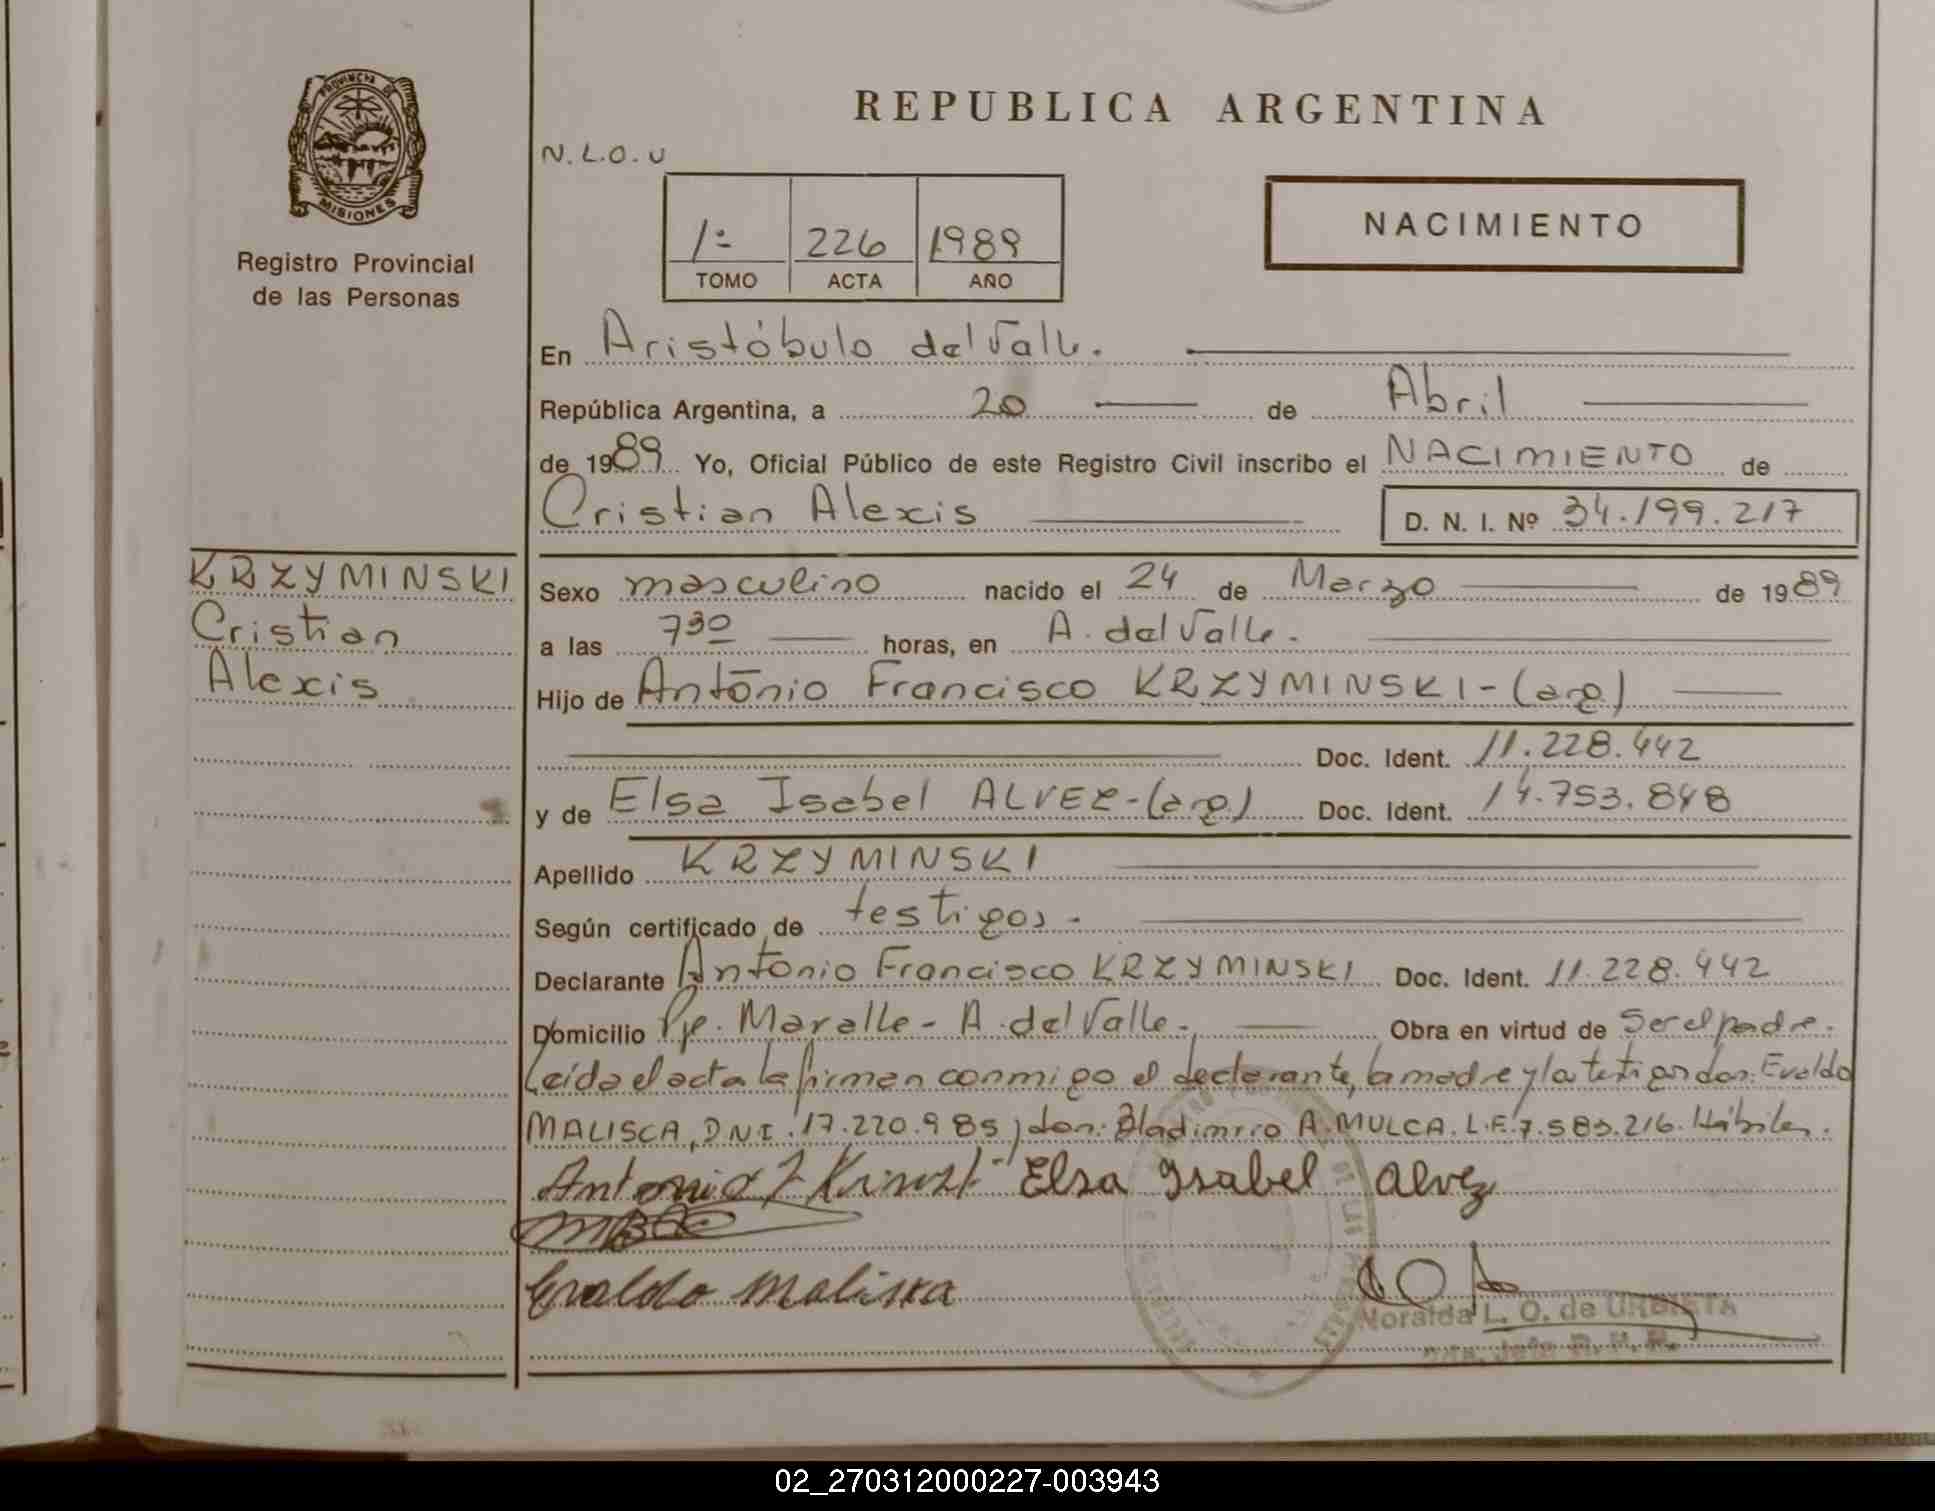 PROVINCIA DE
MISIONES
Registro Provincial
de las Personas
REPUBLICA ARGENTINA
N.L.O.U
1º 226 1989
TOMO ACTA AÑO
NACIMIENTO
En Aristóbulo del Valle.
República Argentina, a 20 de Abril
de 1989 Yo, Oficial Público de este Registro Civil inscribo el NACIMIENTO de
Cristian Alexis D. N. I. Nº 34.199.217
KRZYMINSKI
Cristian
Alexis
Sexo masculino nacido el 24 de Marzo de 1989
a las 730 horas, en A. del Valle.
Hijo de Antonio Francisco KRZYMINSKI-(arg)
Doc. Ident. 11.228.442
y de Elsa Isabel ALVEZ-(arg) Doc. Ident. 14.753.848
Apellido KRZYMINSKI
Según certificado de testigos.
Declarante Antonio Francisco KRZYMINSKI Doc. Ident. 11.228.442
Domicilio Pje. - A. del Valle. Obra en virtud de Ser el padre.
Leída el acta la firman conmigo el declarante, la madre y los testigos don: Evaldo
MALISCA, DNI. 17.220.985 y don: Bladimiro A. MULCA. L.E. 7.583.216. Hábiles.
Antonio F Elsa Ysabel Alvez
Evaldo Maliska
Noralda L. O. de URBISTA
02_270312000227-003943